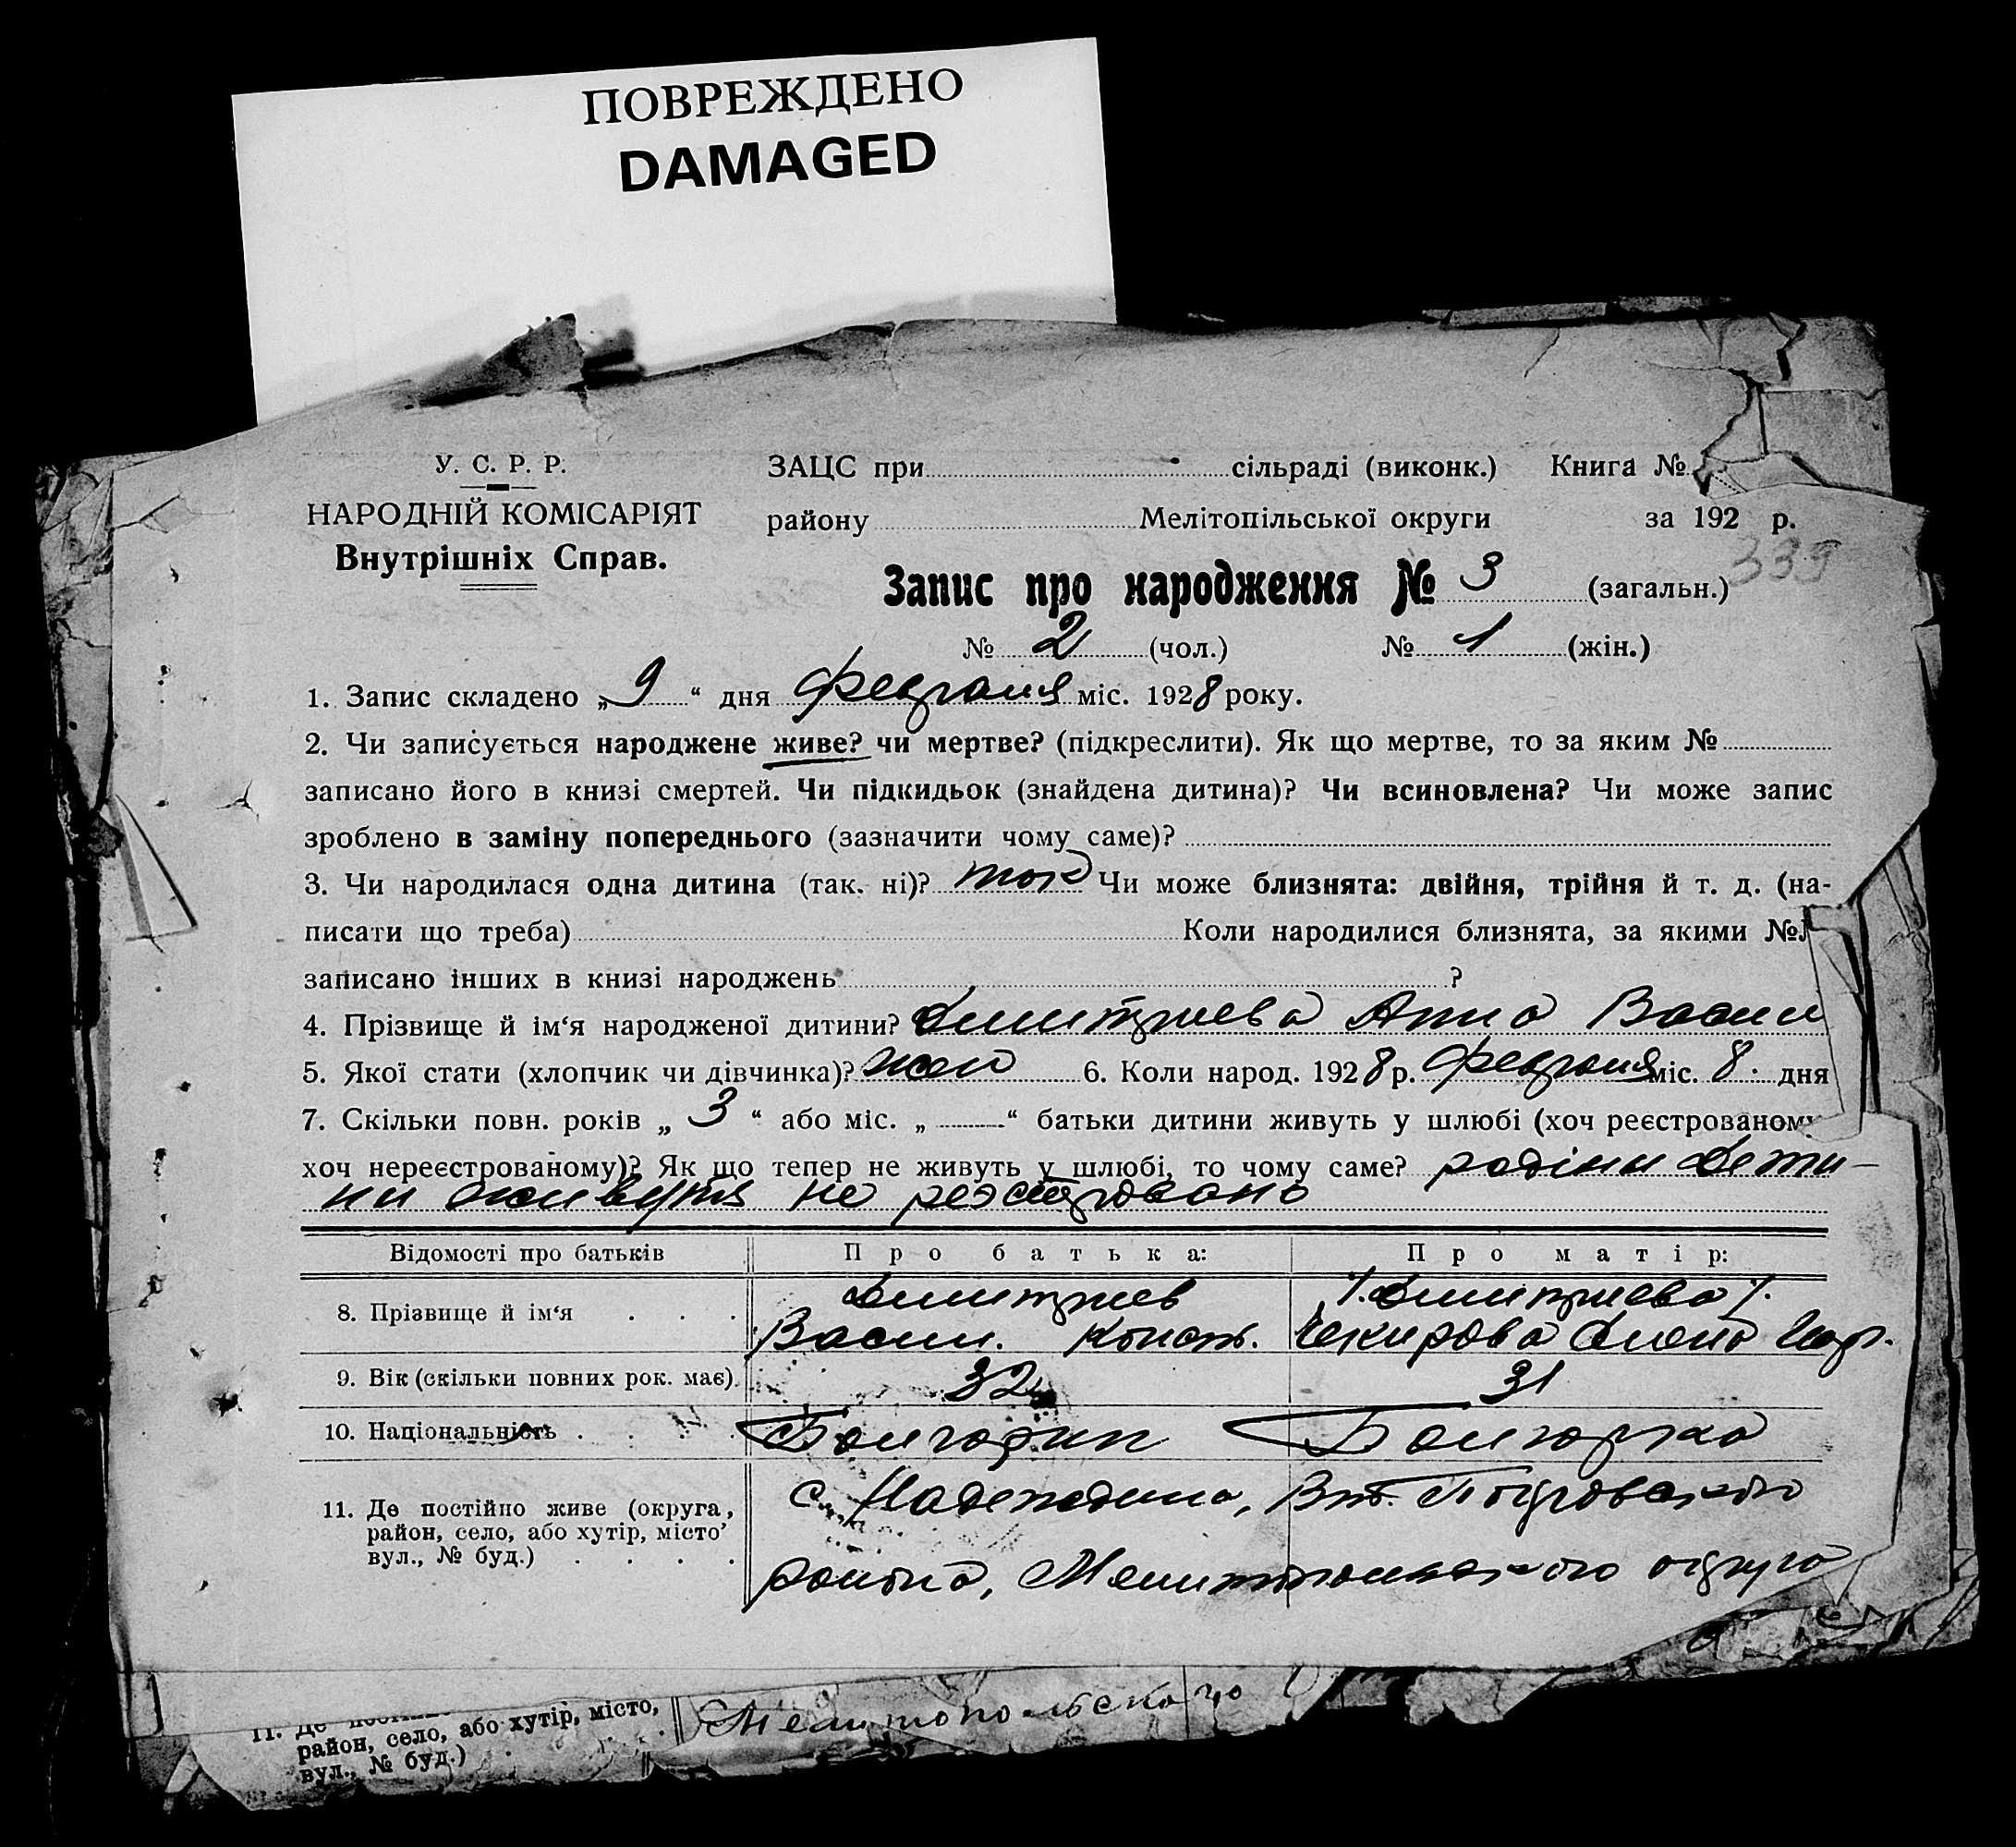 ПОВРЕЖДЕНО
DAMAGED
У. С. Р. Р.
НАРОДНІЙ КОМІСАРІЯТ
Внутрішніх Справ.
ЗАЦС при сільраді (виконк.) Книга №
району Мелітопільської округи за 192 р.
339
Запис про народження № 3 (загальн.)
№ 2 (чол.) № 1 (жін.)
1. Запис складено „9“ дня февраля міс. 1928 року.
2. Чи записується народжене живе? чи мертве? (підкреслити). Як що мертве, то за яким №
записано його в книзі смертей. Чи підкидьок (знайдена дитина)? Чи всиновлена? Чи може запис
зроблено в заміну попереднього (зазначити чому саме)?
3. Чи народилася одна дитина (так. ні)? так Чи може близнята: двійня, трійня й т. д. (на-
писати що треба) Коли народилися близнята, за якими №№
записано інших в книзі народжень ?
4. Прізвище й ім‘я народженої дитини? Дмитриева Анна Васил
5. Якої стати (хлопчик чи дівчинка)? жен 6. Коли народ. 1928 р. февраля міс. 8. дня
7. Скільки повн. років „ 3 “ або міс. „ “ батьки дитини живуть у шлюбі (хоч реєстрованому
хоч нереєстрованому)? Як що тепер не живуть у шлюбі, то чому саме? родіни дети-
ни живутя не реэстровано
Відомості про батьків Про батька: Про матір:
8. Прізвище й ім‘я . . . Дмитриев Василь. Конст. /.Дмитриева/. Чекирова Елена
9. Вік (скільки повних рок. має). 32 31
10. Національність . . . Болгарин Болгарка
11. Де постійно живе (округа,
район, село, або хутір, місто’
вул., № буд.) . . . .
с. Надеждино, Вт. Покровского
района, Мелитопольского округа
11. Де
район, село, або хутір, місто,
вул., № буд.) . . .
Мелитопольского